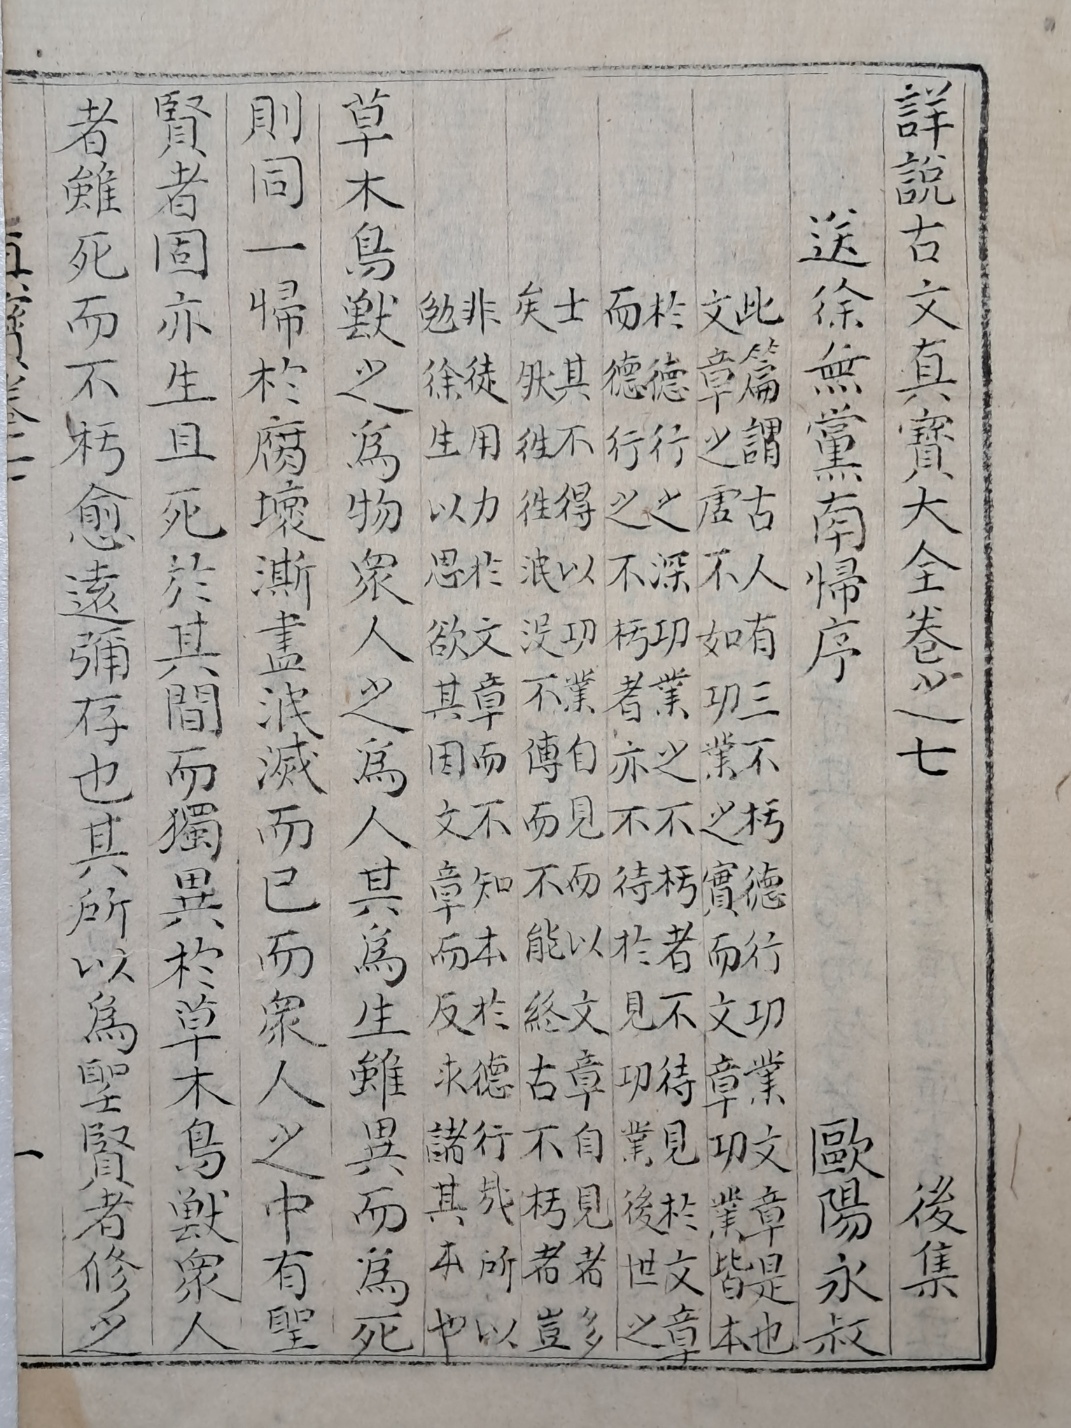 詳說古文真寶大全卷之七　後集
送徐無黨南帰序　歐陽永叔
此篇謂古人有三不朽德行功業文章是也
文章之虛不如功業之實而文章功業皆本
於德行之深功業之不朽者不待見於文章
而德行之不朽者亦不待於見功業後世之
士其不得以功業自見而以文章自見者多
矣然徃徃泯没不傳而不能終古不朽者豈
非徒用力於文章而不知本於德行哉所以
勉徐生以思欲其因文章而反求諸其本也
草木鳥獸之爲物衆人之爲人其爲生雖異而爲死
則同一帰於腐壞澌盡泯滅而已而衆人之中有聖
賢者固亦生且死於其間而獨異於草木鳥獸衆人
者雖死而不朽愈遠彌存也其所以爲聖賢者修之
真寶卷七
一